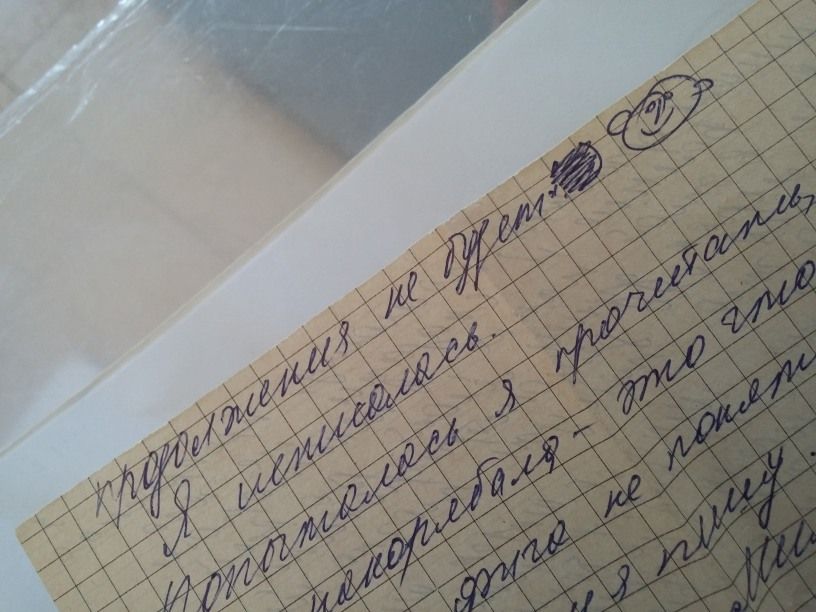 продолжения не будет.
Я исписалась.
Попыталась я прочитать,
накарябала - это что
фига не понят
я пишу.